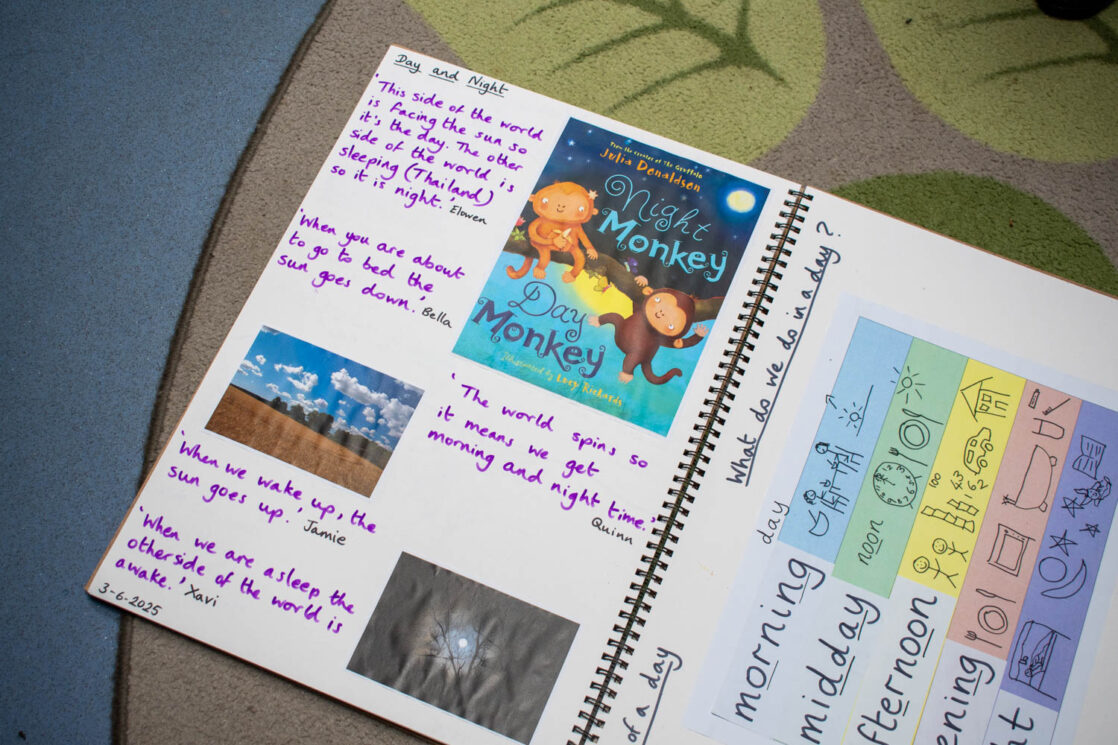 Day and Night
'This side of the world
is facing the sun so
it's the day. The other
side of the world is
sleeping (Thailand)
so it is night.' Elowen
'When you are about
to go to bed the
sun goes down.' Bella
'When we wake up, the
sun goes up.' Jamie
'When we are asleep the
otherside of the world is
awake.' Xavi
3-6-2025
From the creator of The Gruffalo
Julia Donaldson
Night
Monkey
Day
Monkey
Illustrated by Lucy Richards
'The world spins so
it means we get
morning and night time.'
Quinn
What do we do in a day?
of a day
day
noon
100
43
162
morning
midday
fternoon
ening
ht